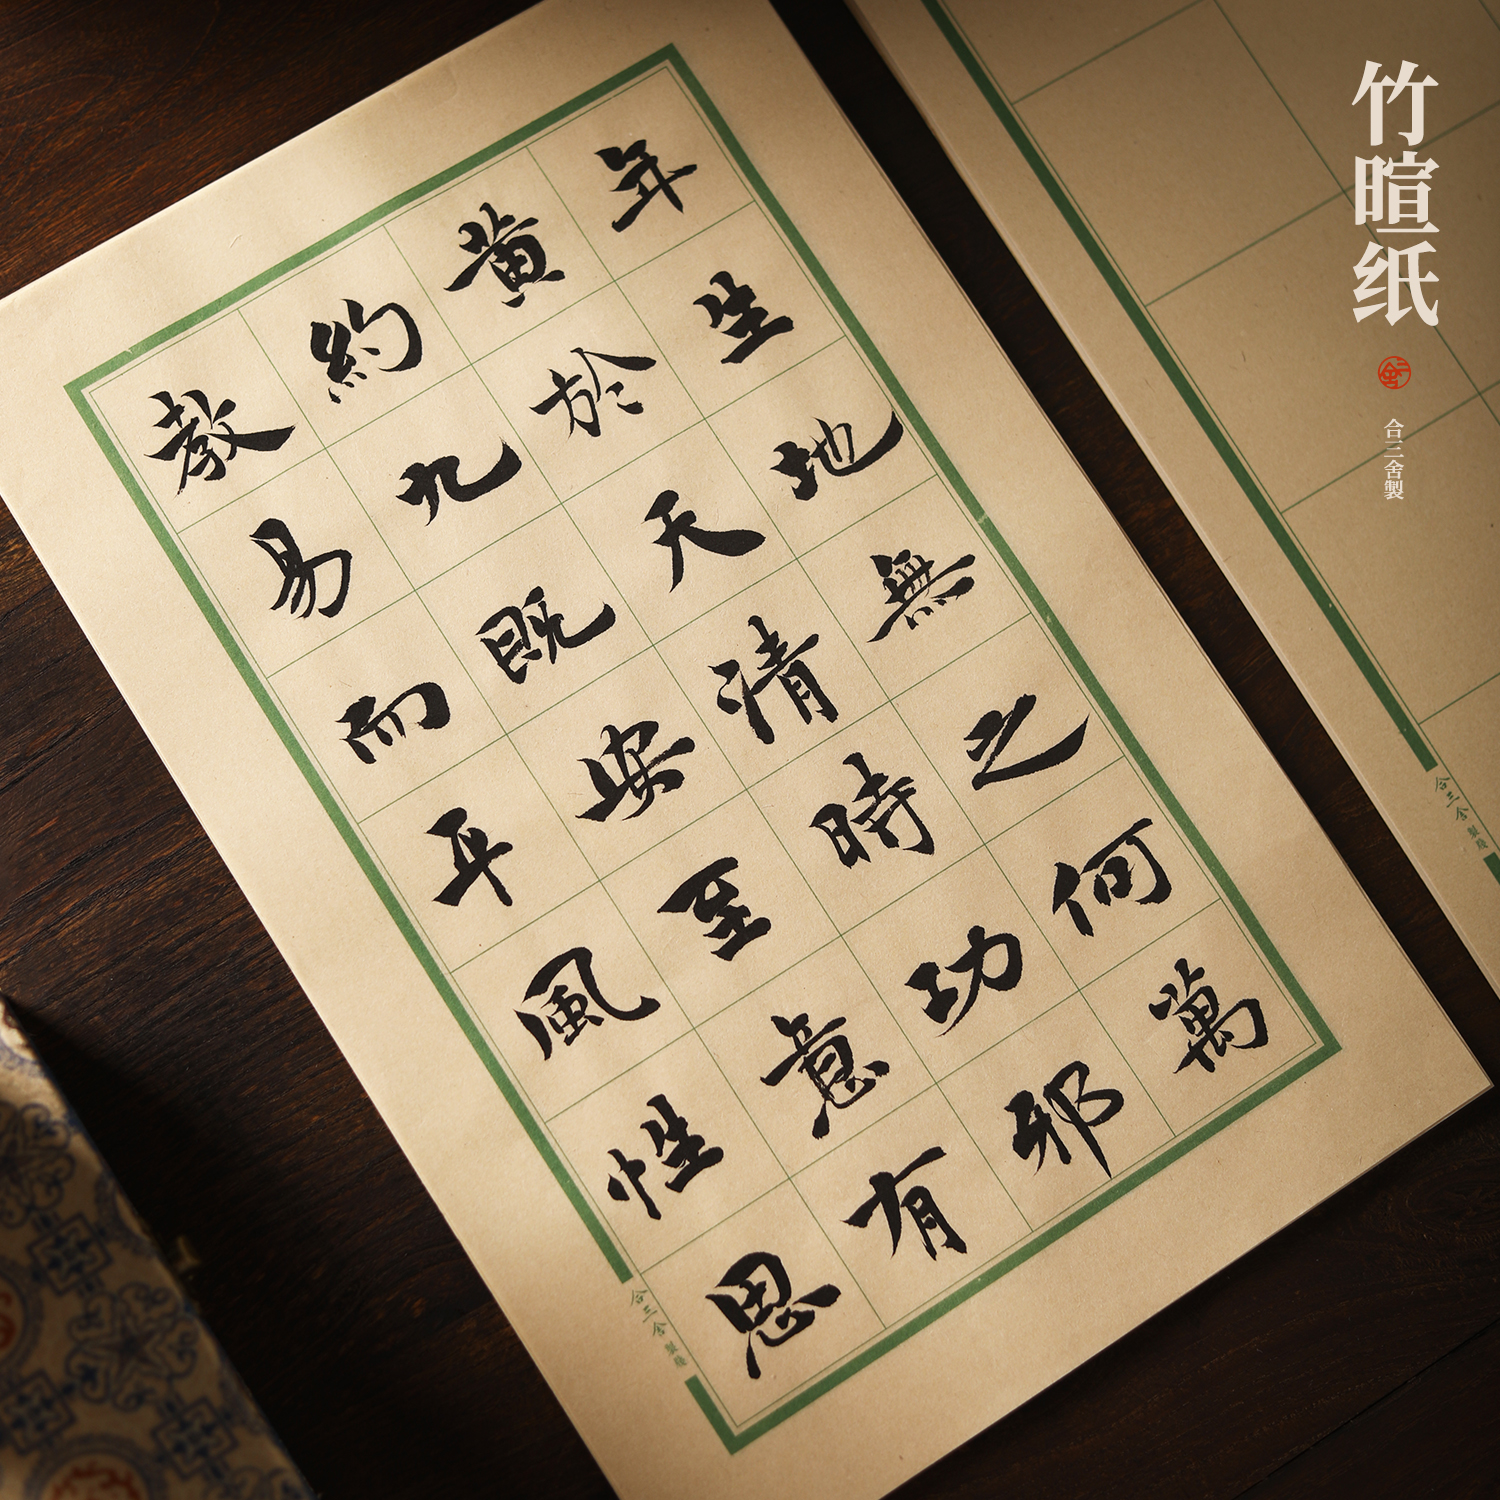 年生地無之何萬
黄於天清時功邪
約九既安至意有
教易而平風性思
合三舍
竹暄纸
合三舍製
合三舍